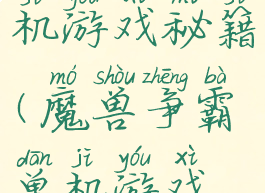 机游戏秘籍
mó shòu zhēng bà
(魔兽争霸
dān jī yóu xì
单机游戏